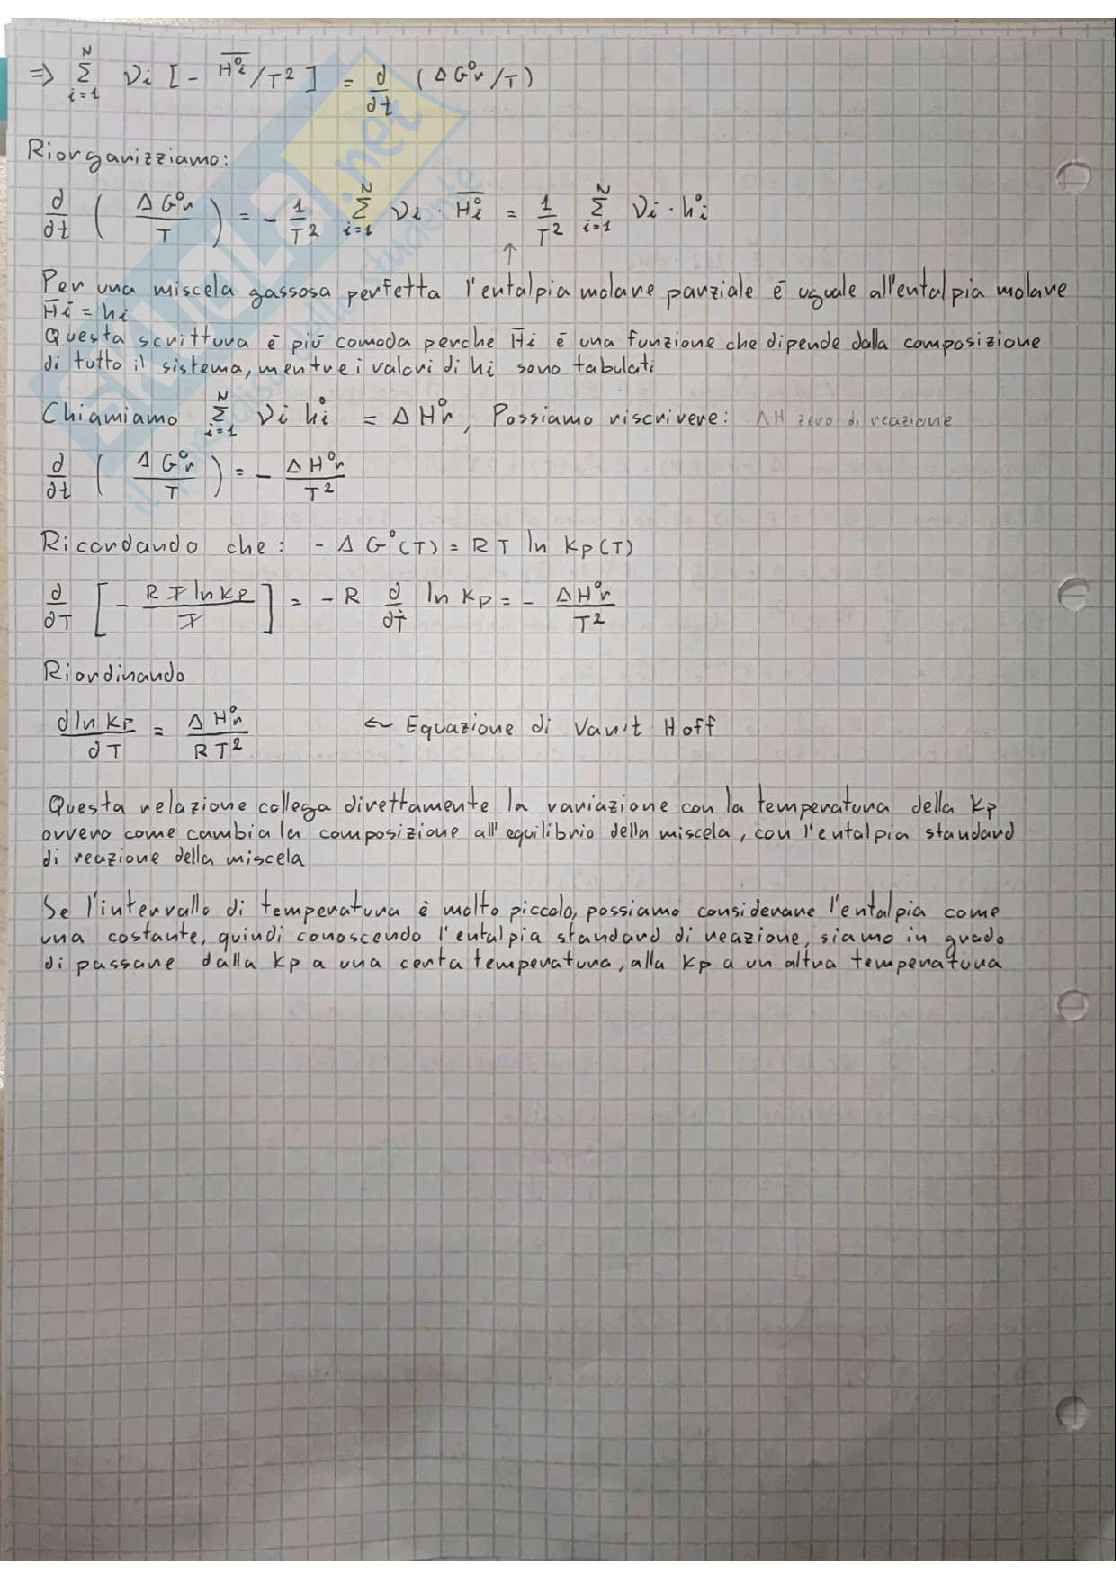 ⇒ Σ_{i=1}^{N} νi [- H̅°i/T²] = ∂/∂t (ΔG°r/T)
Riorganizziamo:
∂/∂t (ΔG°r/T) = - 1/T² Σ_{i=1}^{N} νi · H̅°i = 1/T² Σ_{i=1}^{N} νi · h°i
↑
Per una miscela gassosa perfetta l'entalpia molare parziale é uguale all'entalpia molare
H̅i = hi
Questa scrittura é più comoda perche H̅i é una funzione che dipende dalla composizione
di tutto il sistema, mentre i valori di hi sono tabulati
Chiamiamo Σ_{i=1}^{N} νi h°i = ΔH°r, Possiamo riscrivere: ΔH zero di reazione
∂/∂t (ΔG°r/T) = - ΔH°r/T²
Ricordando che: - ΔG°(T) = RT ln Kp(T)
∂/∂T [- RT ln Kp/T] = - R ∂/∂T ln Kp = - ΔH°r/T²
Riordinando
∂ln Kp/∂T = ΔH°r/RT² ← Equazione di Van't Hoff
Questa relazione collega direttamente la variazione con la temperatura della Kp
ovvero come cambia la composizione all'equilibrio della miscela, con l'entalpia standard
di reazione della miscela
Se l'intervallo di temperatura è molto piccolo, possiamo considerare l'entalpia come
una costante, quindi conoscendo l'entalpia standard di reazione, siamo in grado
di passare dalla Kp a una certa temperatura, alla Kp a un altra temperatura